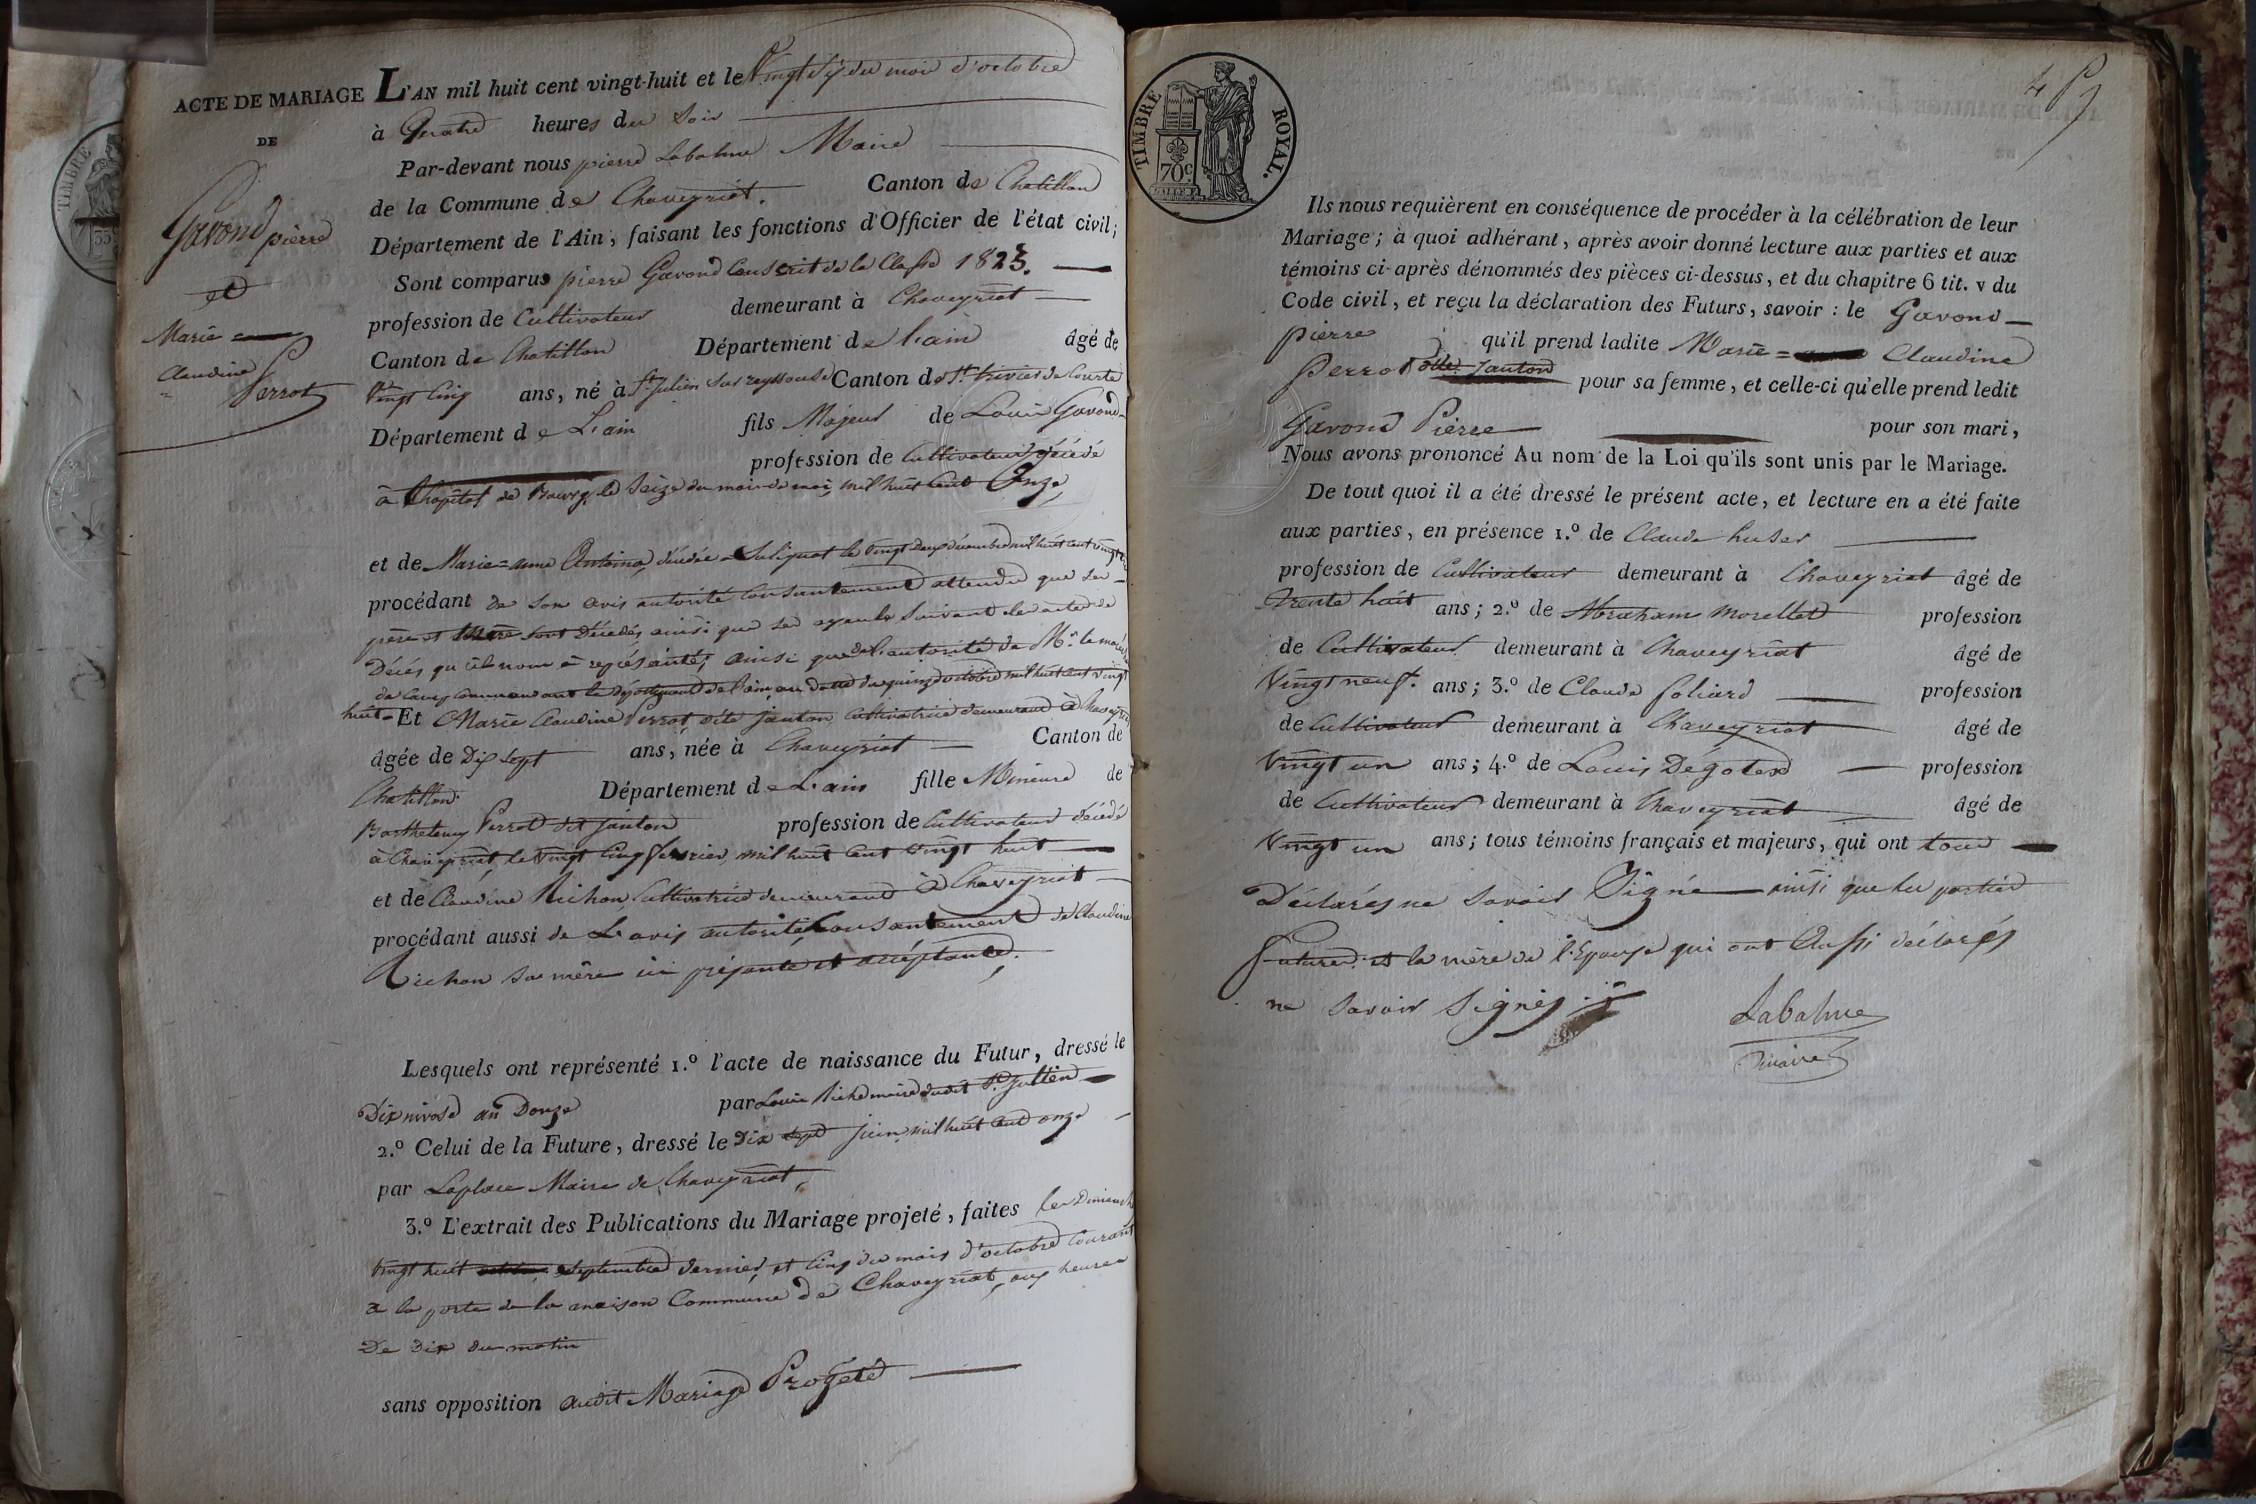 ACTE DE MARIAGE
DE
Gavond pierre
et
Marie
Claudine
Perrot
TIMBRE
L'AN mil huit cent vingt-huit et le Vingt six du mois d'octobre
à Quatre heures du Soir
Par-devant nous pierre Labalme Maire
de la Commune de Chaveyriat. Canton de Chatillon
Département de l'Ain, faisant les fonctions d'Officier de l'état civil;
Sont comparus pierre Gavond Conscrit de la Classe 1823.
profession de Cultivateur demeurant à Chaveyriat
Canton de Chatillon Département de l'ain âgé de
Vingt Cinq ans, né à St. Julien sur reyssouse Canton de St. trivier de Courte
Département de L'ain fils Majeur de Louis Gavond
profession de Cultivateur décédé
à l'hopital de Bourg, le Seize du mois de mai, mil huit Cent Onze,
et de Marie=anne Antoine, décédée a Sulignat le vingt deux décembre mil huit cent vingt
procédant de son avis autorité Consantement attendu que ses
père et Mère sont Décédés ainsi que ses ayeuls Suivant les actes de
Décés qu'il nous a représentés, ainsi que de l'autorité de Mr. le maréchal
de Camp Commandant le département de l'ain, en datte du quinze octobre mil huit cent vingt
huit. Et Marie Claudine Perrot, dite Janton, Cultivatrice demeurand à Chaveyriat
âgée de Dix Sept ans, née à Chaveyriat Canton de
Chatillon Département de L'ain fille Mineure de
Barthelemy Perrot dit Janton profession de Cultivateur décédé
à Chaveyriat, le Vingt Cinq fevrier, mil huit Cent Vingt huit
et de Claudine Richon, Cultivatrice demeurand à Chaveyriat
procédant aussi de L'avis autorité, Consantement de Claudine
Richon sa mère ici présante et acceptante.
Lesquels ont représenté 1.º l'acte de naissance du Futur, dressé le
Dix nivose an Douze par Louis Riche maire dudit St. Jullien
2.º Celui de la Future, dressé le Dix sept juin, mil huit Cent onze
par Laplace Maire de Chaveyriat,
3.º L'extrait des Publications du Mariage projeté, faites les Dimanche
Vingt huit septembre dernier, et Cinq du mois d'octobre Courant
a la porte de la maison Commune de Chaveyriat, aux heures
De dix du matin
sans opposition audit Mariage Projeté
TIMBRE ROYAL.
70c.
Ils nous requièrent en conséquence de procéder à la célébration de leur
Mariage; à quoi adhérant, après avoir donné lecture aux parties et aux
témoins ci-après dénommés des pièces ci-dessus, et du chapitre 6 tit. v du
Code civil, et reçu la déclaration des Futurs, savoir: le Gavond
Pierre qu'il prend ladite Marie= Claudine
Perrot dite Janton pour sa femme, et celle-ci qu'elle prend ledit
Gavond Pierre pour son mari,
Nous avons prononcé Au nom de la Loi qu'ils sont unis par le Mariage.
De tout quoi il a été dressé le présent acte, et lecture en a été faite
aux parties, en présence 1.º de Claude huser
profession de Cultivateur demeurant à Chaveyriat âgé de
Trente huit ans; 2.º de Abraham Morellet profession
de Cultivateur demeurant à Chaveyriat âgé de
Vingt neuf. ans; 3.º de Claude Foliard profession
de Cultivateur demeurant à Chaveyriat âgé de
Vingt un ans; 4.º de Louis Degoten profession
de Cultivateur demeurant à Chaveyriat âgé de
Vingt un ans; tous témoins français et majeurs, qui ont tous
Déclarés ne Savoir Signé ainsi que les parties
Futures et la mère de l'Epouse qui ont Aussi déclarés
ne savoir Signés
Labalme
maire